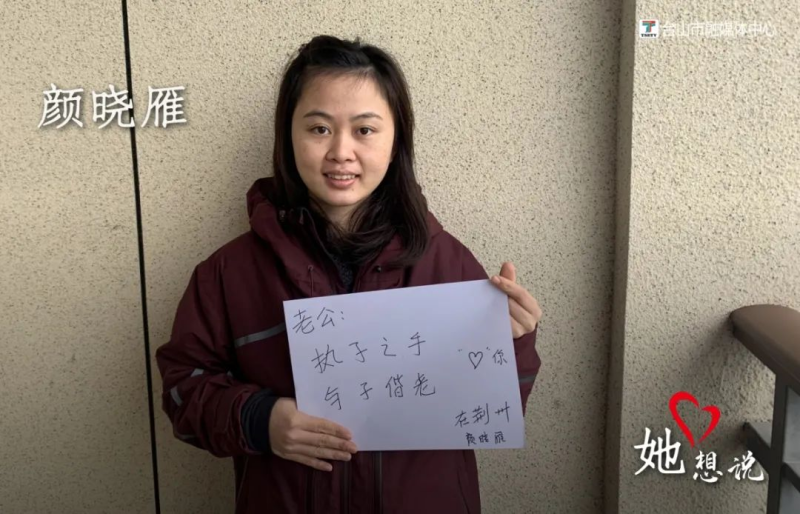 颜晓雁
TSRTV 台山市融媒体中心
老公：
执子之手
与子偕老
“♡”你
在荆州
颜晓雁
她想说